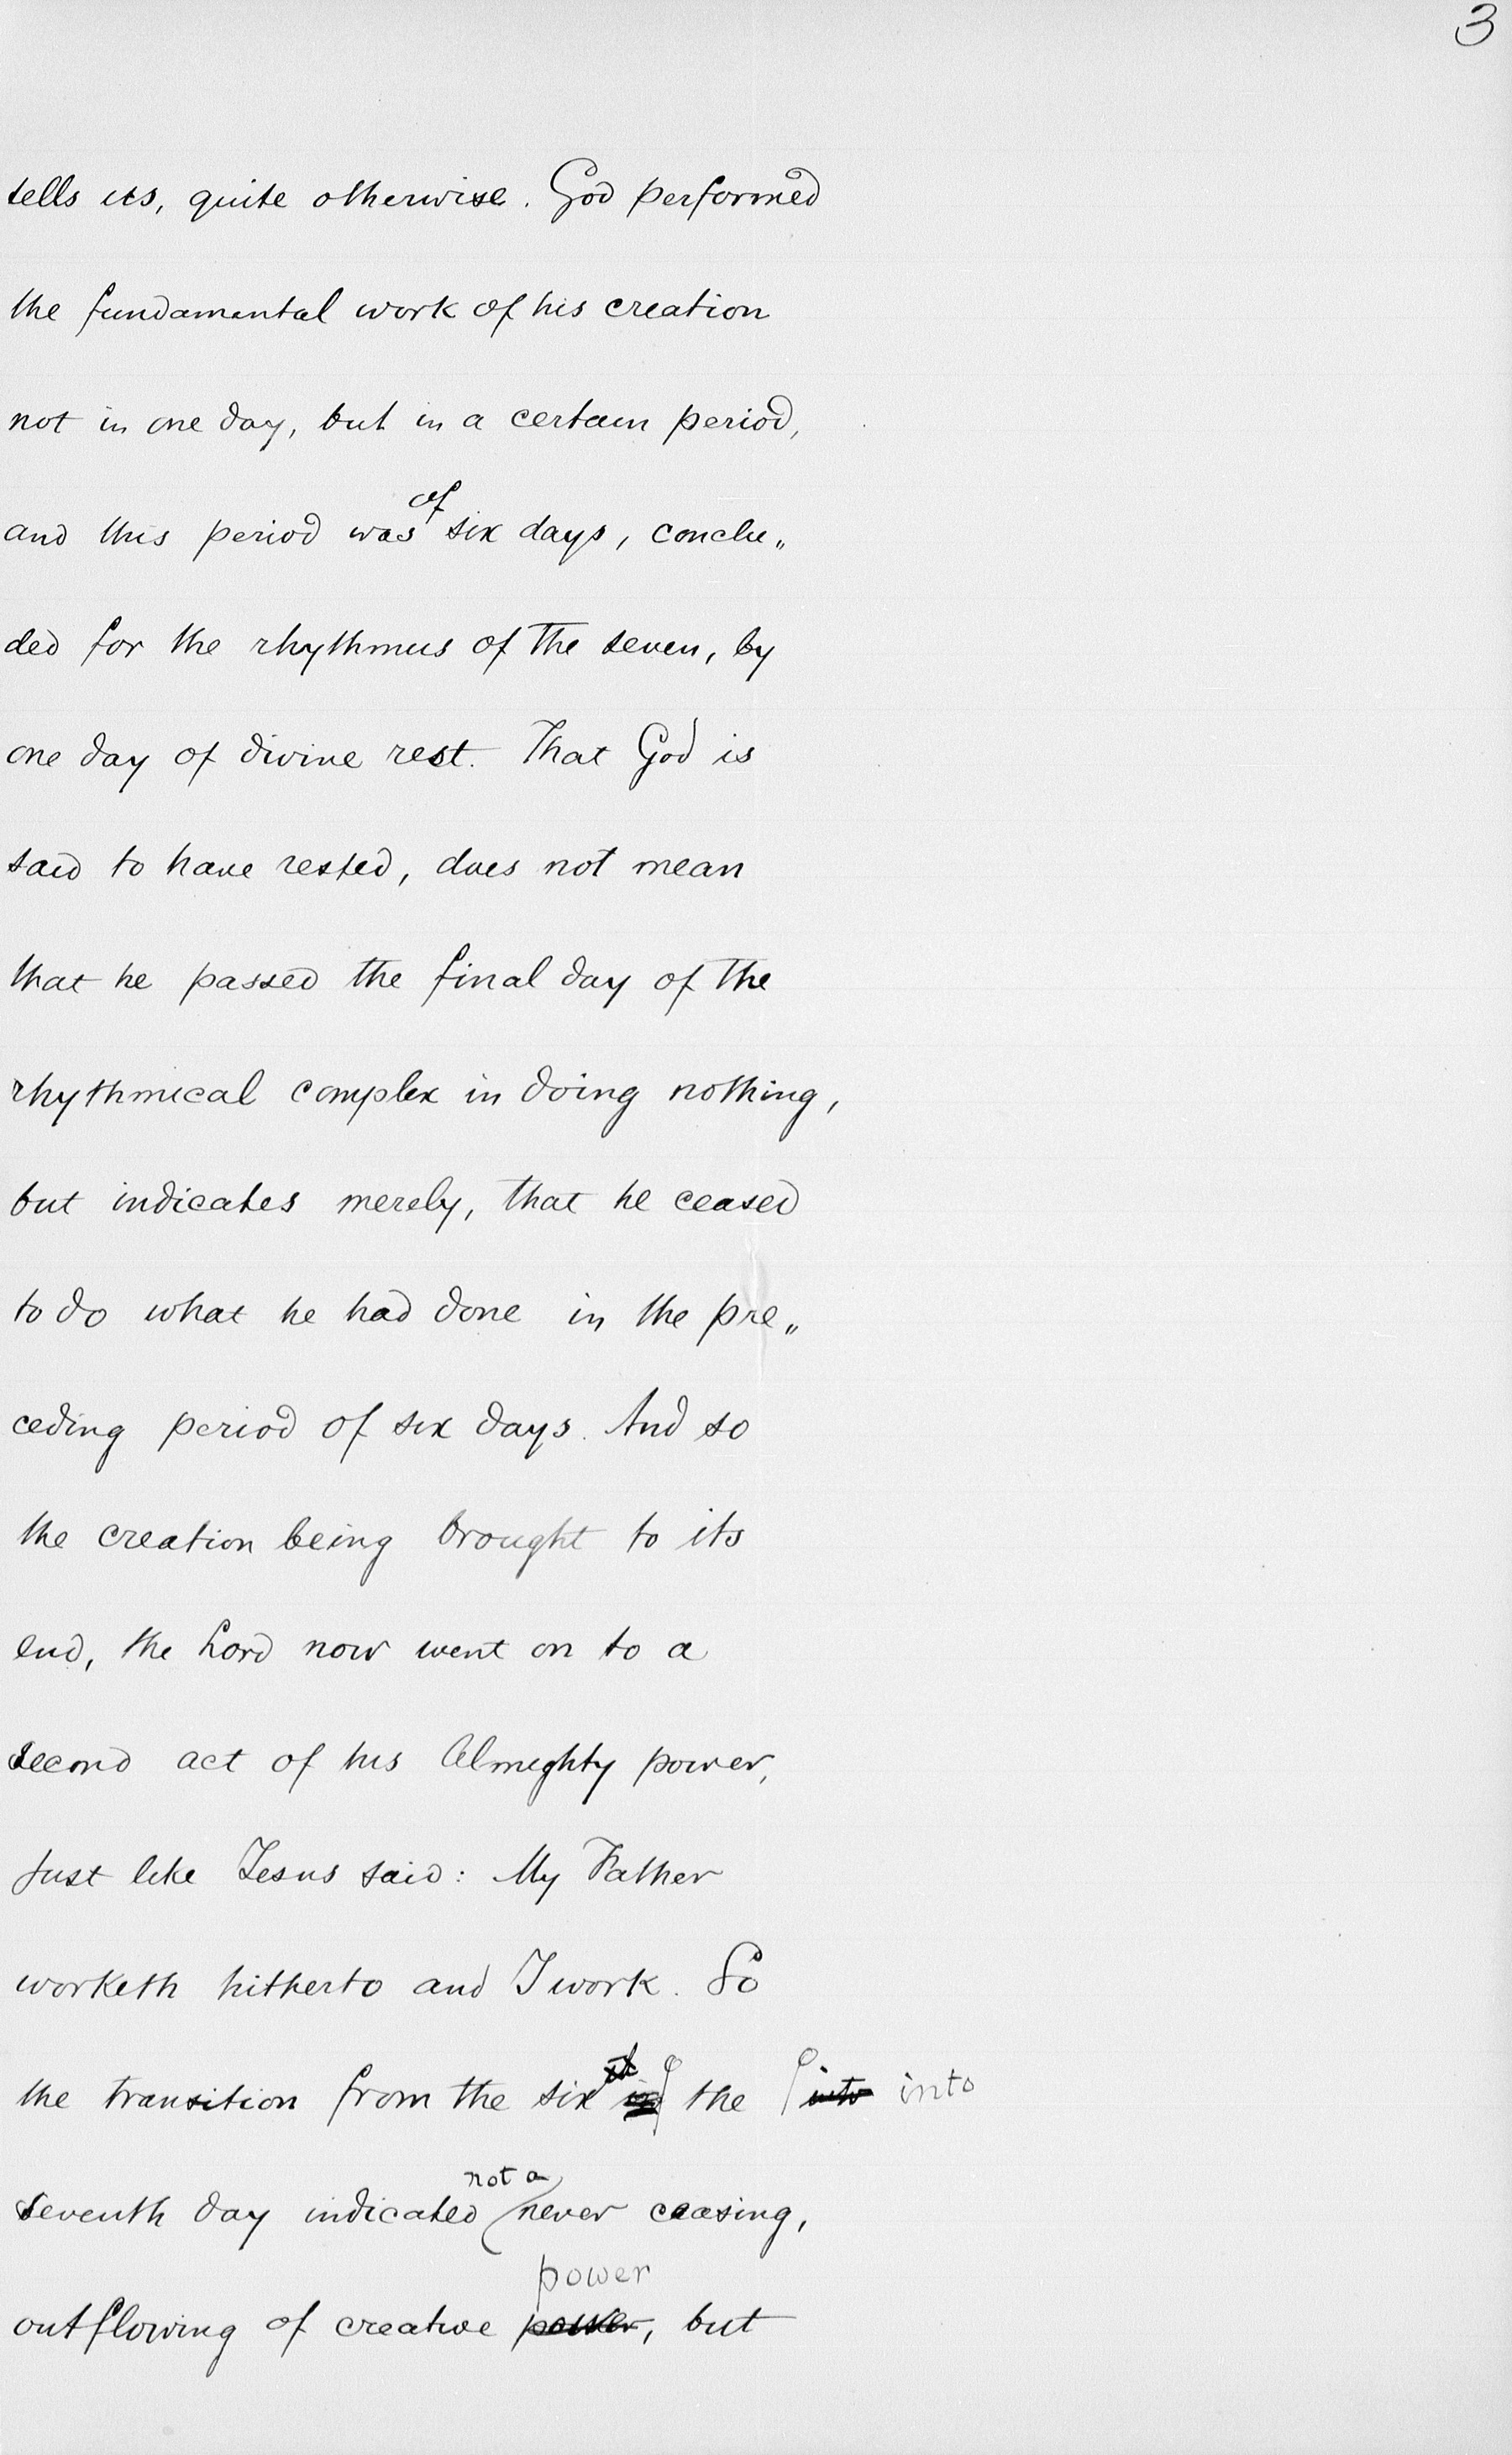 3
tells us, quite otherwise. God performed
the fundamental work of his creation
not in one day, but in a certain period,
of
and this period was six days, conclu„
ded for the rhythmus of the seven, by
one day of divine rest. That God is
said to have rested, does not mean
that he passed the final day of the
rhythmical complex in doing nothing,
but indicates merely, that he ceased
to do what he had done in the pre„
ceding period of six days. And so
the creation being brought to its
end, the Lord now went on to a
second act of his Almighty power,
just like Jesus said: My Father
worketh hitherto and I work. So
the transition from the six the into into
not a
seventh day indicated never ceasing,
power
outflowing of creative power, but